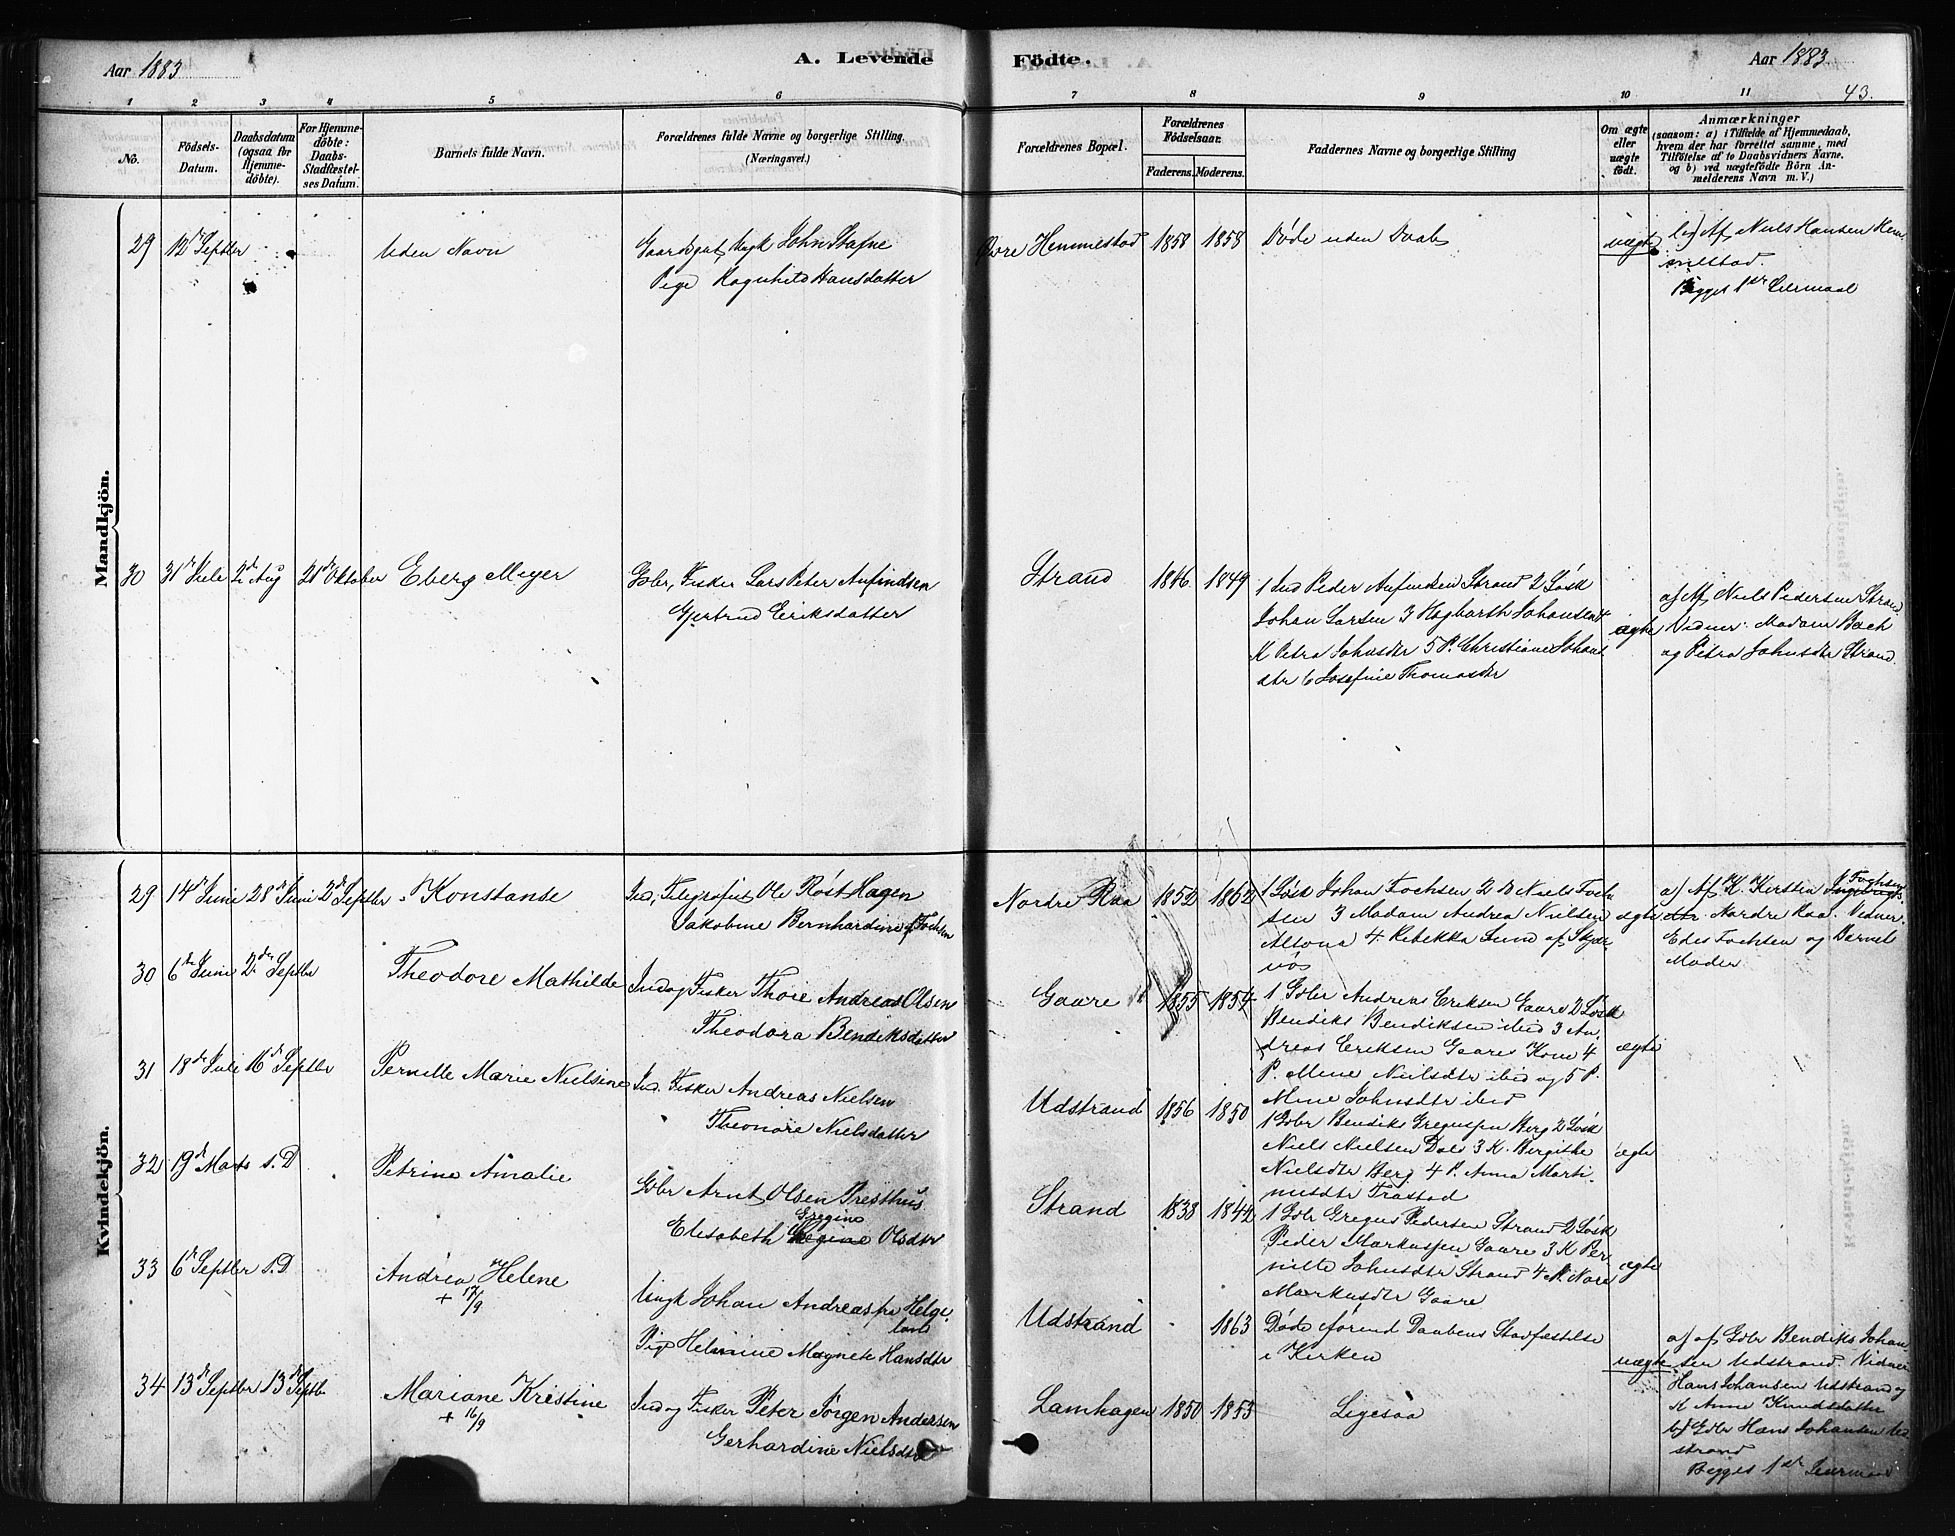 Aar 1883
A. Levende
Födte.
Aar 1883
43.
1 2 3 4 5 6 7 8 9 10 11
No.
Födsels-
Datum.
Daabsdatum
(ogsaa for
Hjemme-
döbte).
For Hjemme-
döbte:
Daabs-
Stadfæstel-
ses Datum.
Barnets fulde Navn.
Forældrenes fulde Navne og borgerlige Stilling.
(Næringsvei.)
Forældrenes Bopæl.
Forældrenes
Födselsaar.
Faderens. Moderens.
Faddernes Navne og borgerlige Stilling
Om ægte
eller
uægte
födt.
Anmærkninger
(saasom: a) i Tilfælde af Hjemmedaab,
hvem der har forrettet samme, med
Tilföielse af to Daabsvidners Navne.
og b) ved uægtefödte Börn An-
melderens Navn m. V.)
Mandkjön.
29 12te Septbr
Uden Navn
Gaardsgut, Ungk John Stafne
Pige Ragnhild Hansdatter
Øvre Hemmestad 1858 1858
Døde uden Daab
uægte
b) Af Niels Hansen Hem
mestad.
Begges 1ste Leiermaal
30 31te Juli 2de Aug 21de Oktober
Eberg Meyer
Gbr, Fisker Lars Peter Anfindsen
Gjertrud Eriksdatter
Strand 1846 1849
1 Ind Peder Anfindsen Strand 2 Løsk
Johan Larsen 3 Hagbarth Johansen 4
K Petra Johnsdtr 5 P. Christiane Johans
dtr 6 Josefine Thomasdtr
ægte
a) Af Niels Pedersen Strand
Vidner: Madam Bach
og Petra Johnsdtr Strand
Kvindekjön.
29 14de Juni 28de Juni 2de Septbr
Konstanse
Ind, Telegrafist Ole Røst Hagen
Jakobine Bernhardine f. Fochsen
Nordre Raa 1852 1862
1 Løsk Johan Fochsen 2 D Niels Foch
sen 3 Madam Andrea Nielsen
Altona 4. Rebekka Lund af Skjær
vø
ægte
a) Af K. Kirsten Fochsen
dtr. Nordre Raa. Vidner:
Edes Fochsen og Barnets
Moder
30 6te Juni 2den Septbr
Theodore Mathilde
Ind og Fisker Thore Andreas Olsen
Theodora Bendiksdatter
Gaare 1855 1854
1 Gbr Andreas Eriksen Gaare 2 Løsk
Bendiks Bendiksen ibid 3 An
dreas Eriksen Gaares Kone 4
P. Mene Nielsdtr ibid og 5 P.
Mine Johnsdtr ibid
ægte
31 18de Juli 16de Septbr
Pernille Marie Nielsine
Ind. Fisker Andreas Nielsen
Theonore Nielsdatter
Udstrand 1856 1850
1 Gbr Bendiks Gregusen Berg 2 Løsk
Niels Nielsen Dale 3 K. Birgithe
Nielsdtr Berg 4 P. Anna Marti
nusdtr Trastad
ægte
32 19de Marts s. D
Petrine Amalie
Gbr Arnt Olsen Presthus
Gregine
Elisabeth Olsdtr
Strand 1833 1842
1 Gbr Gregus Pedersen Strand 2 Løsk
Peder Markussen Gaare 3 K Per
nille Johnsdtr Strand 4 Nora
Markusdtr Gaare
ægte
33 6te Septbr s. D
Andrea Helene
+ 17/9
Ungk Johan Andreas fra Helge
land
Pige Helmine Magnete Hansdtr
Udstrand 1863
Døde førend Daabens Stadfæstelse
i Kirken
uægte
a) af Gbr Bendiks Johan
sen Udstrand. Vidner
Hans Johansen Udstrand og
K Anne Knudsdatter
b) Gbr Hans Johansen Ud
strand
Begges 1ste Leiermaal
34 13de Septbr 13de Septb
Mariane Kristine
+ 16/9
Ind og Fisker Peter Jørgen Andersen
Gerhardine Nielsdtr
Lamhagen 1850 1853
Ligesaa